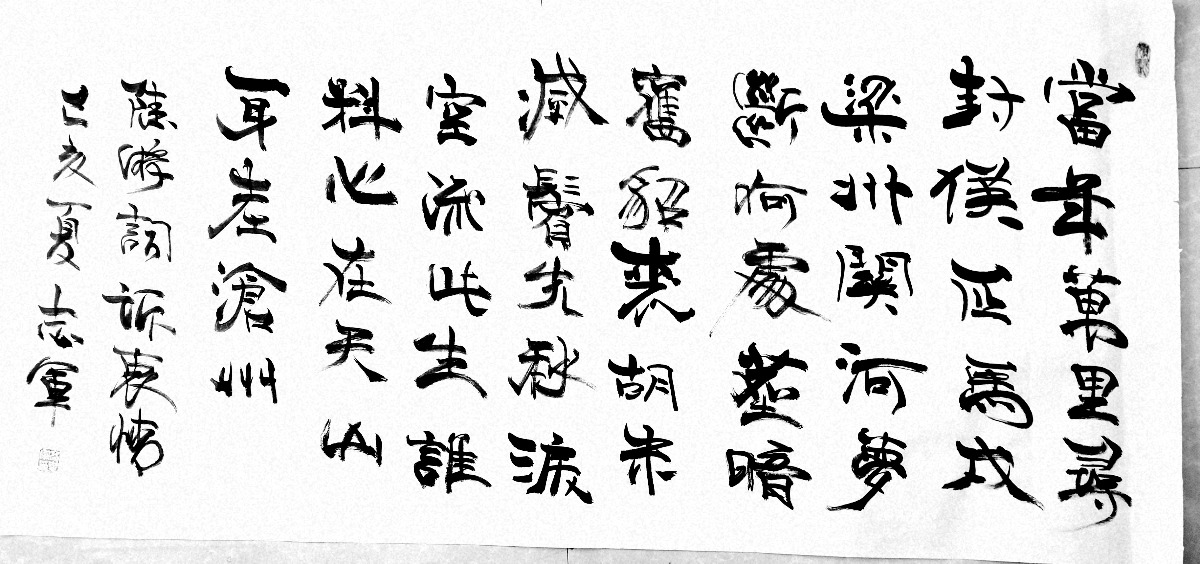 當年萬里尋
封侯匹馬戍
梁州關河夢
斷何處塵暗
舊貂裘胡未
滅鬢先秋淚
空流此生誰
料心在天山
身老滄州
陸游詞訴衷情
己亥夏志軍